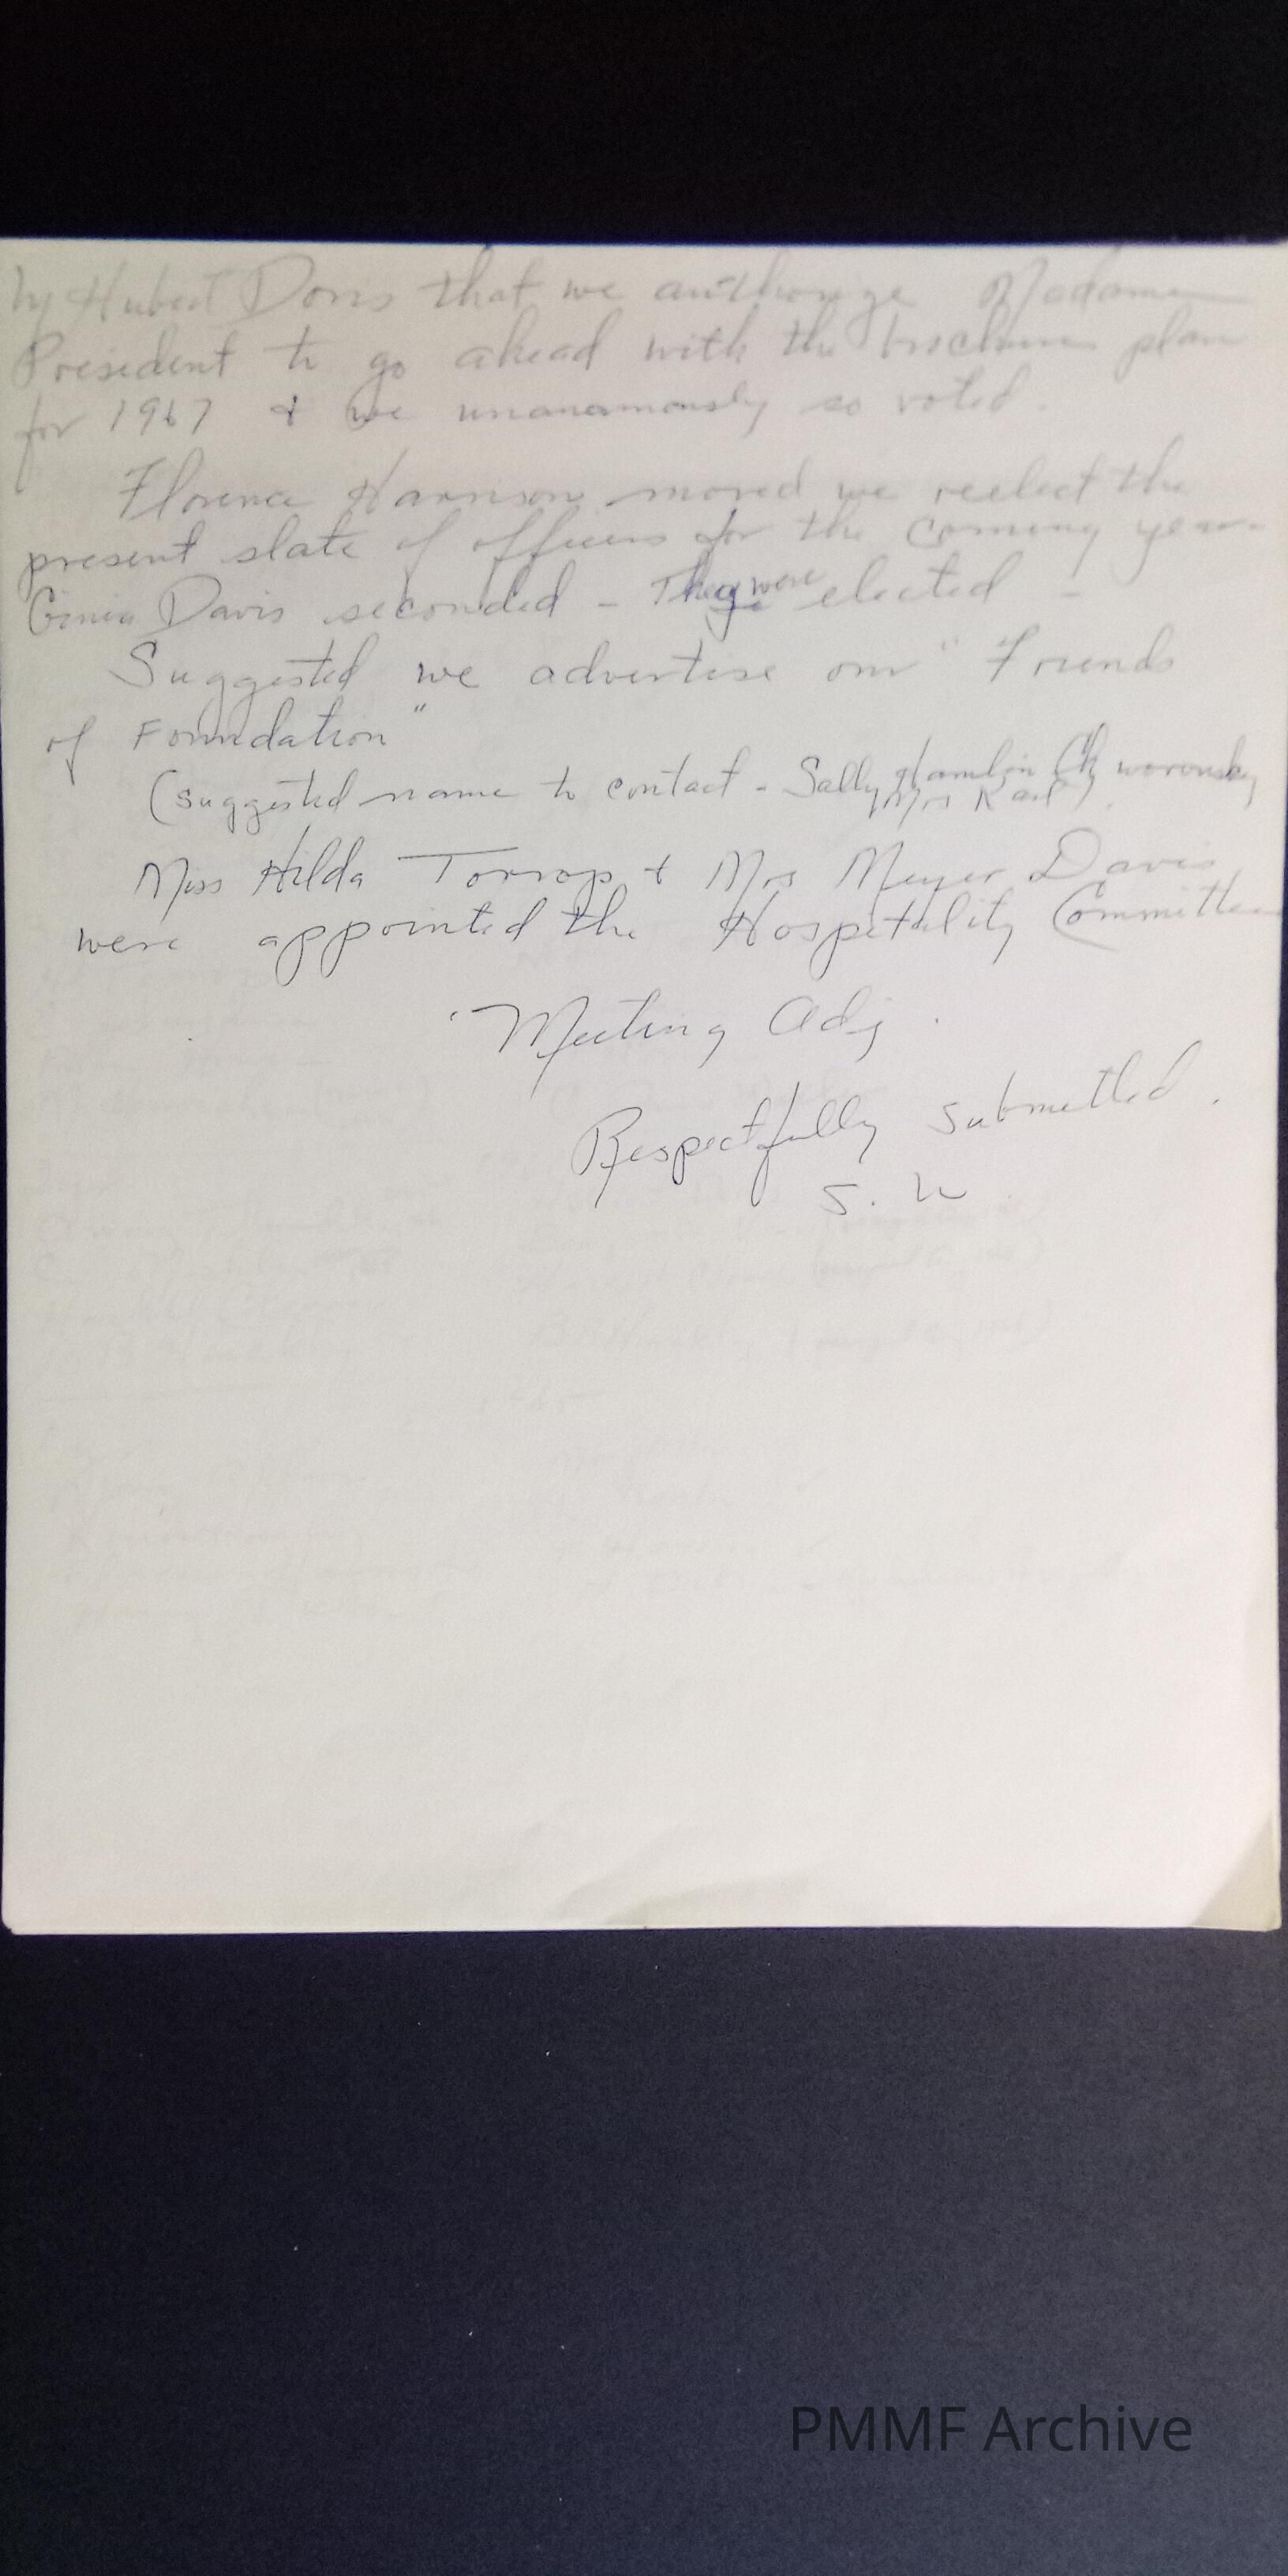 by Hubert Doris that we authorize Madame
President to go ahead with the brochure plan
for 1967 & we unanamously so voted.
Florence Harrison moved we reelect the
present slate of officers for the coming year-
Ginia Davis seconded - They were elected -
Suggested we advertise our "Friends
of Foundation"
(suggested name to contact - Sally Hamlin
Mrs Karl)
Miss Hilda Torrop & Mrs Meyer Davis
were appointed the Hospitality Committee
Meeting Adj.
Respectfully submitted.
S. W
PMMF Archive